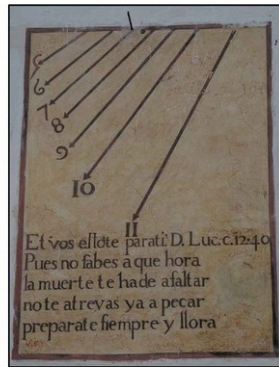 5
6
7
8
9
10
11
Et vos eſtote parati. D. Luc. c. 12. 40
Pues no ſabes a que hora
la muerte te ha de aſaltar
no te atrevas ya a pecar
preparate ſiempre y llora